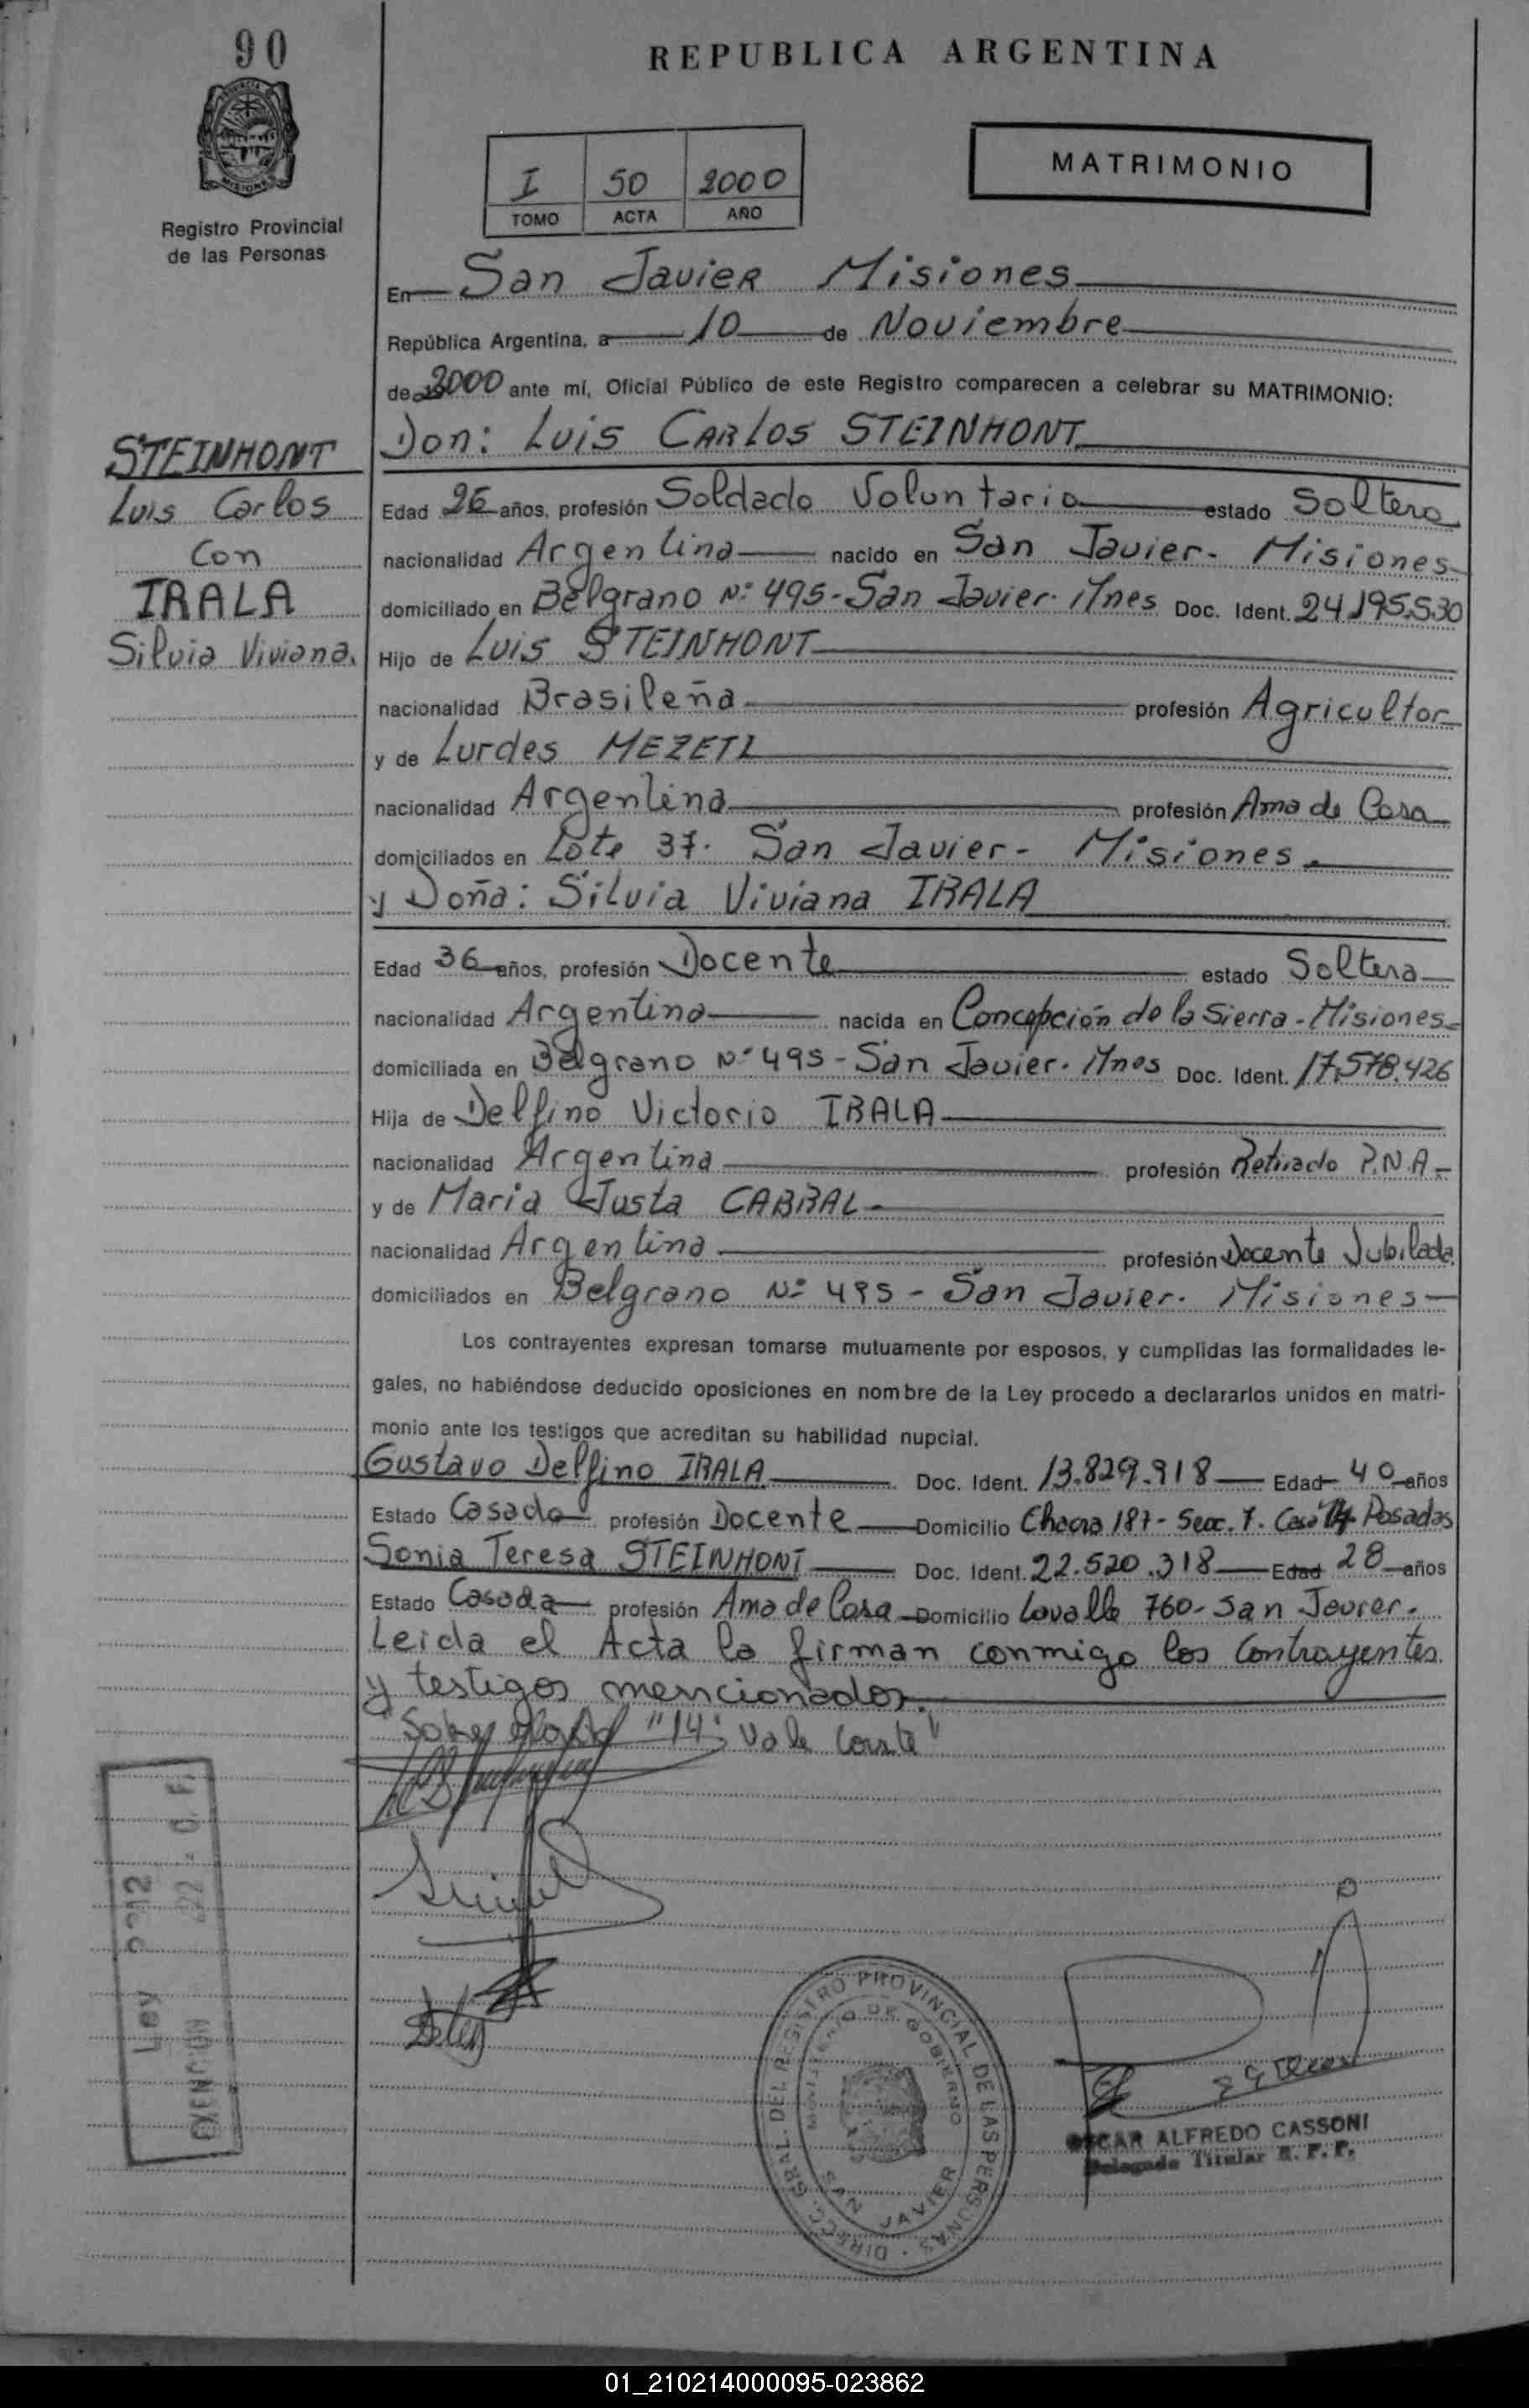 90
REPUBLICA ARGENTINA
MISIONES
Registro Provincial
de las Personas
I 50 2000
TOMO ACTA AÑO
MATRIMONIO
En San Javier Misiones
República Argentina, a 10 de Noviembre
de 2000 ante mí, Oficial Público de este Registro comparecen a celebrar su MATRIMONIO:
STEINHONT
Luis Carlos
Con
IRALA
Silvia Viviana.
Don: Luis CARLOS STEINHONT
Edad 26 años, profesión Soldado Voluntario estado Soltero
nacionalidad Argentina nacido en San Javier - Misiones
domiciliado en Belgrano Nº 495 - San Javier. Mnes Doc. Ident. 24.195.530
Hijo de Luis STEINHONT
nacionalidad Brasileña profesión Agricultor
y de Lurdes MEZETI
nacionalidad Argentina profesión Ama de Casa
domiciliados en Lote 37. San Javier - Misiones.
y Doña: Silvia Viviana IRALA
Edad 36 años, profesión Docente estado Soltera
nacionalidad Argentina nacida en Concepción de la Sierra - Misiones
domiciliada en Belgrano Nº 495 - San Javier. Mnes Doc. Ident. 17.578.426
Hija de Delfino Victorio IRALA
nacionalidad Argentina profesión Retirado P.N.A -
y de Maria Justa CABRAL
nacionalidad Argentina profesión Docente Jubilada.
domiciliados en Belgrano Nº 495 - San Javier. Misiones
Los contrayentes expresan tomarse mutuamente por esposos, y cumplidas las formalidades le-
gales, no habiéndose deducido oposiciones en nombre de la Ley procedo a declararlos unidos en matri-
monio ante los testigos que acreditan su habilidad nupcial.
Gustavo Delfino IRALA Doc. Ident. 13.829.918 Edad 40 años
Estado Casado profesión Docente Domicilio Chacra 187 - Secc. 7. Casa 14 Posadas
Sonia Teresa STEINHONT Doc. Ident. 22.520.318 Edad 28 años
Estado Casada profesión Ama de Casa Domicilio Lavalle 760 - San Javier.
Leida el Acta la firman conmigo los Contrayentes
y testigos mencionados.
"14" Vale
Ley 2212
22 - D. F.
EXENCION
DIRECC. GRAL. DEL REGISTRO PROVINCIAL DE LAS PERSONAS
MINISTERIO DE GOBIERNO
SAN JAVIER
OSCAR ALFREDO CASSONI
Delegado Titular R. P. P.
01_210214000095-023862